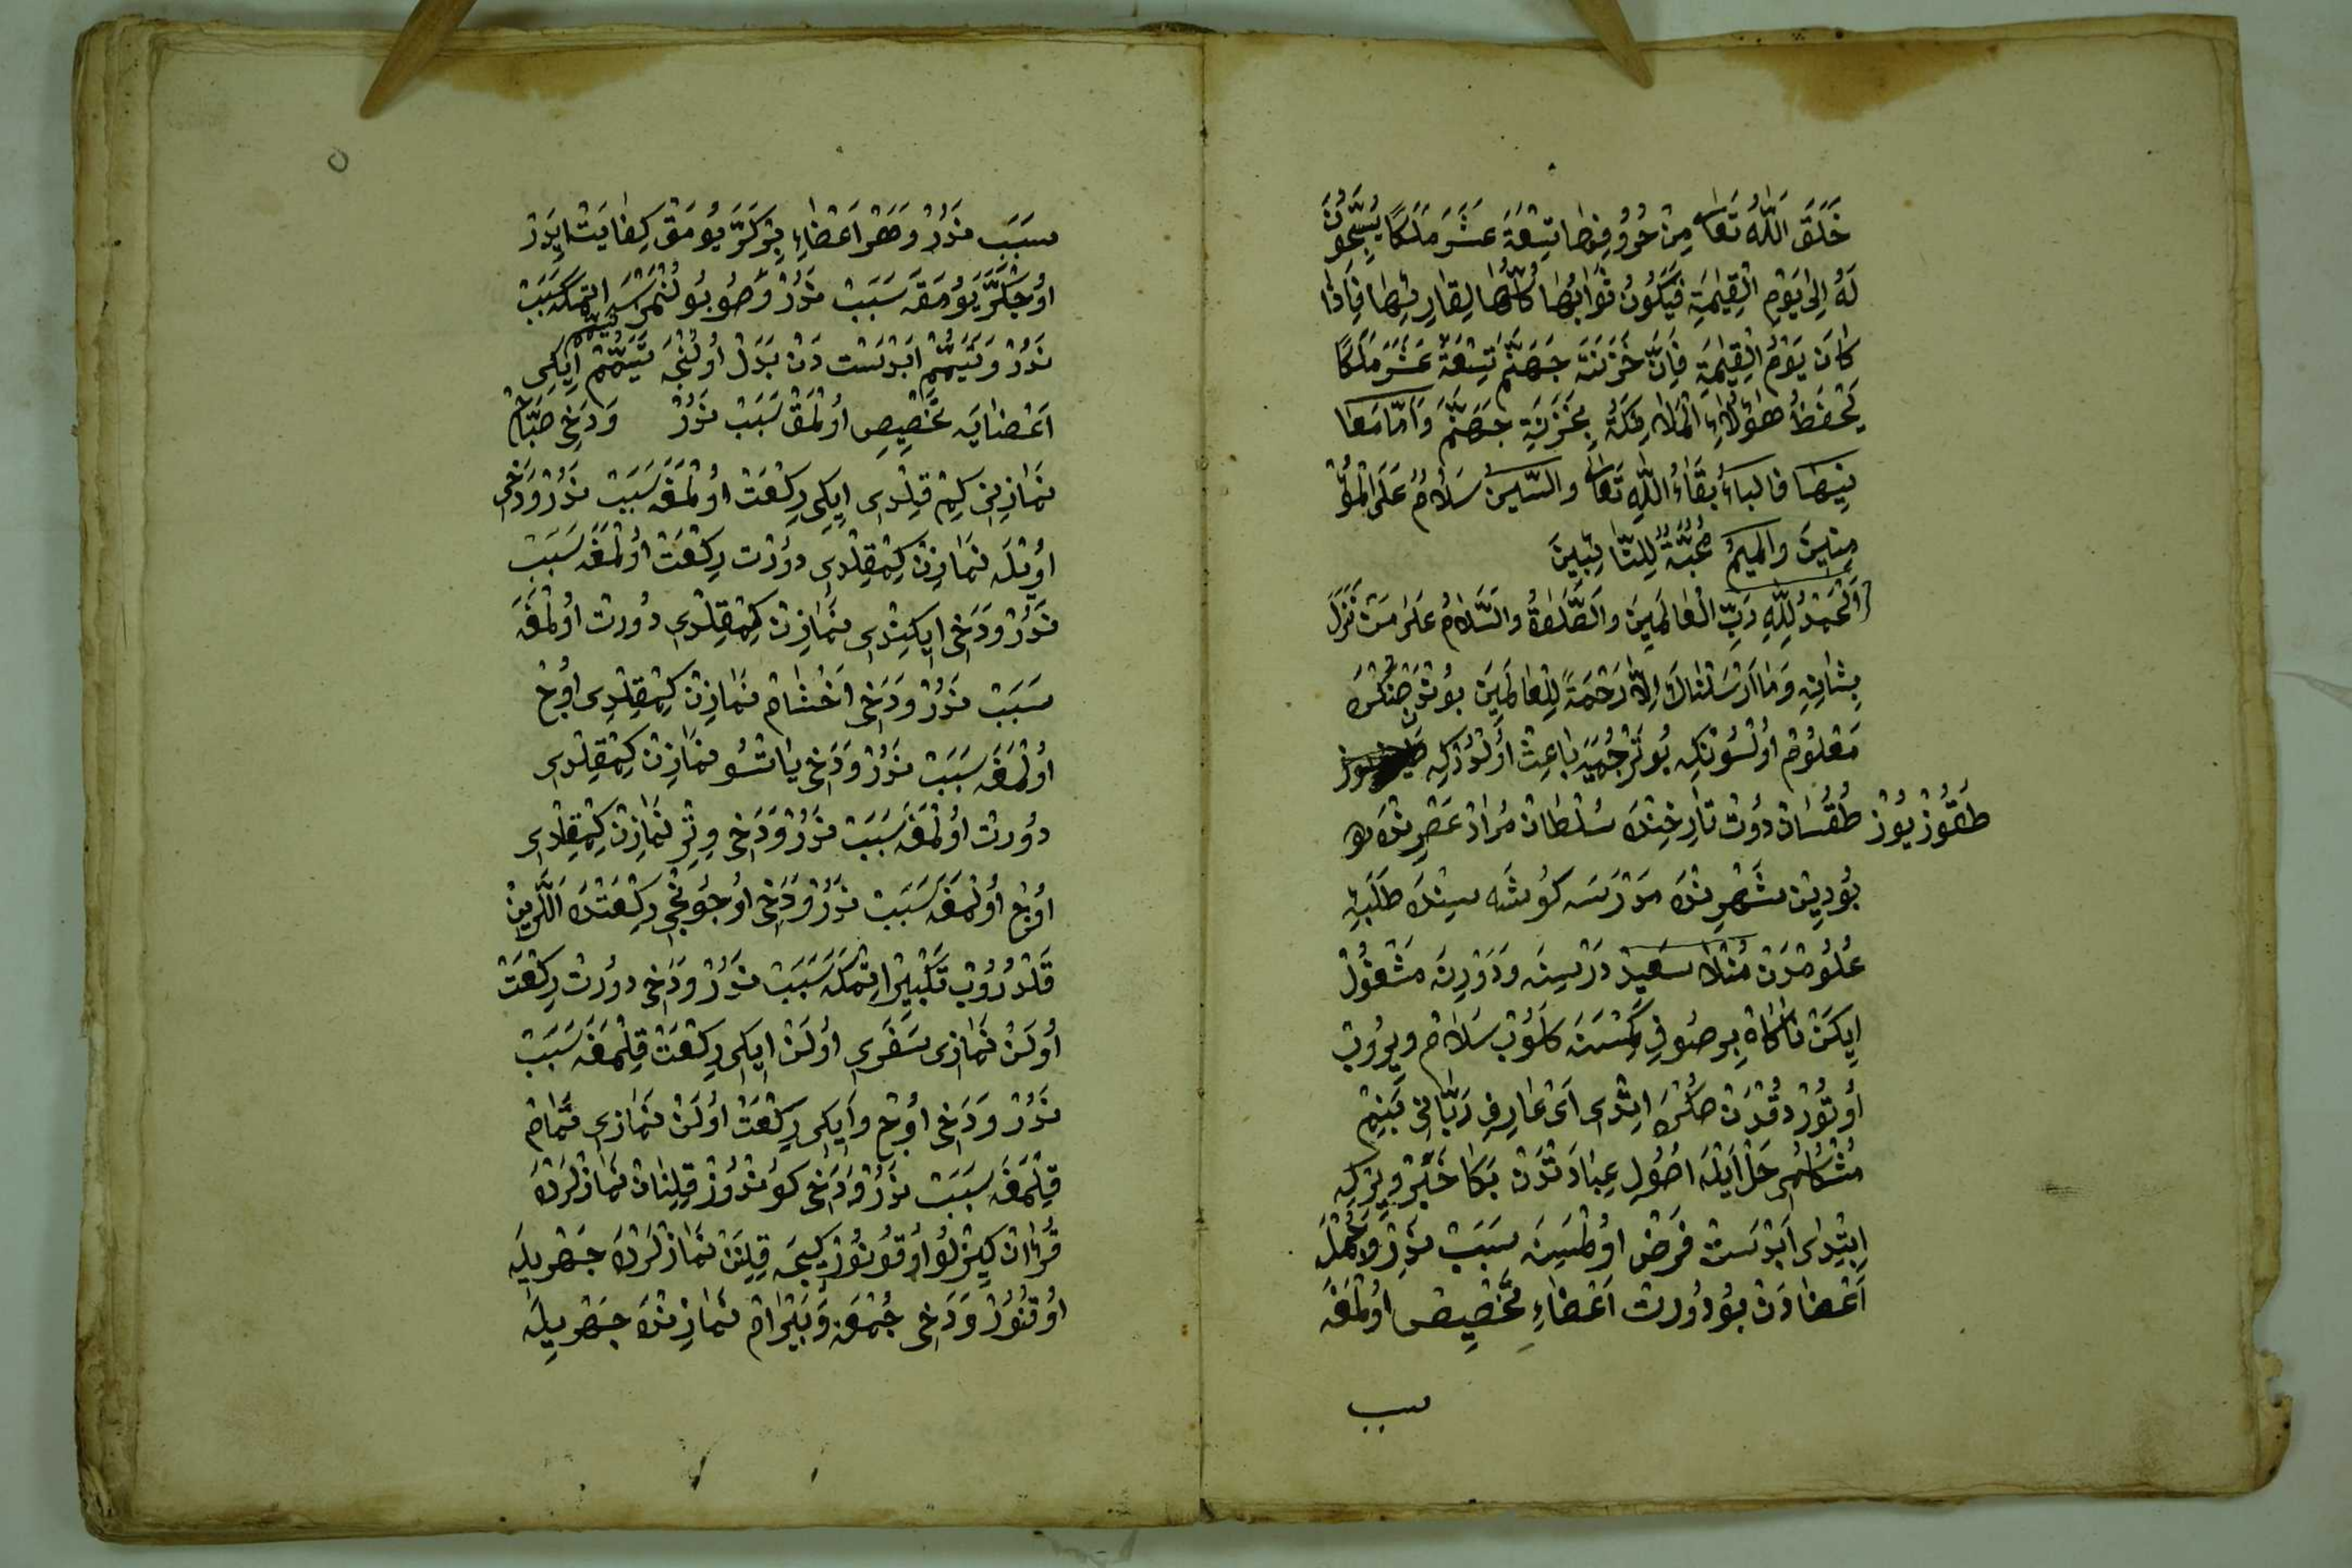 خَلَقَ اَللّٰهُ تَعَالٰى مِنْ حُرُوفِهَا تِسْعَةَ عَشَرَ مَلَكًا يُسَبِّحُونَ
لَهُ اِلٰى يَوْمِ الْقِيٰمَةِ فَيَكُونُ ثَوَابُهَا كُلُّهَا لِقَارِئِهَا فَاِذَا
كَانَ يَوْمُ الْقِيٰمَةِ فَاِنَّ خَزَنَةَ جَهَنَّمَ تِسْعَةَ عَشَرَ مَلَكًا
يَحْفَظُ هٰؤُلَاءِ الْمَلَائِكَةُ بِخَزَنَةِ جَهَنَّمَ وَاَمَّا مَعَا
نِيهَا فالباءُ بَقَاءُ اللّٰهِ تَعَالٰى والسّينُ سَلَامٌ عَلَى الْمُؤْ
مِنِينَ والميمُ مُحَبَّةٌ لِلتَّائِبِينَ
اَلْحَمْدُ لِلّٰهِ رَبِّ الْعَالَمِينَ والصَّلٰوةُ والسَّلَامُ عَلٰى مَنْ نَزَلَ
بِشَانِهِ وَمَا اَرْسَلْنَاكَ اِلَّا رَحْمَةً لِلْعَالَمِينَ بوُنْدَنْ صُكْرَه
مَعْلُومْ اُولْسُونْكِه بُو تَرْجُمَيَه بَاعِثْ اُولْدُرْكِه
طُقُوزْ يُوزْ طُقْسَانْ دُورْتْ تَارِيخِنْدَه سُلْطَانْ مُرَادْ عَصْرِنْدَه
بُودِينْ شَهْرِنْدَه مَدْرَسَه كُوشَه سِينْدَه طَلَبِ
عُلُومْدَنْ مُنْلَا سَعِيدْ دَرْسِينَه وَدَوْرِينَه مَشْغُولْ
اِيكَنْ نَاكَاهْ بِر صُوفِي كِمْسَنَه كَلُوبْ سَلَامْ وِيرُوبْ
اُوتُورْدُقْدَنْ صُكْرَه اِيتْدِى اَىْ عَارِفِ رَبَّانِى بَنِمْ
مُشْكِلُمِى حَلْ اَيْلَه اُصُولِ عِبَادَتْدَنْ بَكَا خَبَرْ وِيرْكِه
اِبْتِدَا اَبْدَسْتْ فَرْضْ اُولْمَسِينَه سَبَبْ نَدِرْ وَجُمْلَه
اَعْضَادَنْ بُو دُورْتْ اَعْضَاءِ تَخْصِيصْ اُولْمَغَه
سبب
سَبَبْ نَدُرْ وَهَرْ اَعْضَاءِ بِرْ كَرَّه يُومَقْ كِفَايَتْ اِيدَرْ
اُوچْ كَرَّه يُومَقَه سَبَبْ نَدُرْ وَصُو بُولُنْمَسَه تَيَمُّمْ اِتْمَكَه سَبَبْ
نَدُرْ وَتَيَمُّمْ اَبْدَسْتْ دَنْ بَدَلْ اُولُنْجَه تَيَمُّمْ اِيكِى
اَعْضَايَه تَخْصِيصْ اُولْمَقْ سَبَبْ نَدُرْ وَدَخِى صَبَاحْ
نَمَازِينِى كِمْ قِيلْدِى اِيكِى رِكْعَتْ اُولْمَغَه سَبَبْ نَدُرْ وَدَخِى
اُويْلَه نَمَازِنْ كِمْ قِلْدِى دُورْتْ رِكْعَتْ اُولْمَغَه سَبَبْ
نَدُرْ وَدَخِى اِيكِنْدِى نَمَازِنْ كِمْ قِلْدِى دُورتْ اُولْمَغَه
سَبَبْ نَدُرْ وَدَخِى اَخْشَامْ نَمَازِنْ كِمْ قِلْدِى اُوچْ
اُولْمَغَه سَبَبْ نَدُرْ وَدَخِى يَاتْسُو نَمَازِنْ كِمْ قِلْدِى
دُورتْ اُولْمَغَه سَبَبْ نَدُرْ وَدَخِى وِتِرْ نَمَازِنْ كِمْ قِلْدِى
اُوچْ اُولْمَغَه سَبَبْ نَدُرْ وَدَخِى اُوچُونْجِى رِكْعَتْدَه اَللَّرِينْ
قَلْدُرُوبْ تَكْبِيرْ اِتْمَكَه سَبَبْ نَدُرْ وَدَخِى دورتْ رِكْعَتْ
اُولَنْ نَمَازِى سَفَرِى اُولَنْ اِيكِى رِكْعَتْ قِلْمَغَه سَبَبْ
نَدُرْ وَدَخِى اُوچْ وَاِيكِى رِكْعَتْ اُولَنْ نَمَازِى تَمَامْ
قِلْمَغَه سَبَبْ نَدُرْ وَدَخِى كُونْدُوزْ قِلِنَانْ نَمَازْلَرْدَه
قُرْاٰنْ كِيزْلُو اُوقُونُورْ كِيجَه قِلِنَنْ نَمَازْلَرْدَه جَهْرِيلَه
اُوقُنُورْ وَدَخِى جُمْعَه وَبَيْرَامْ نَمَازِنْدَه جَهْرِيلَه